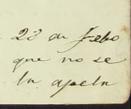 22 de Febo
que no se
la apela